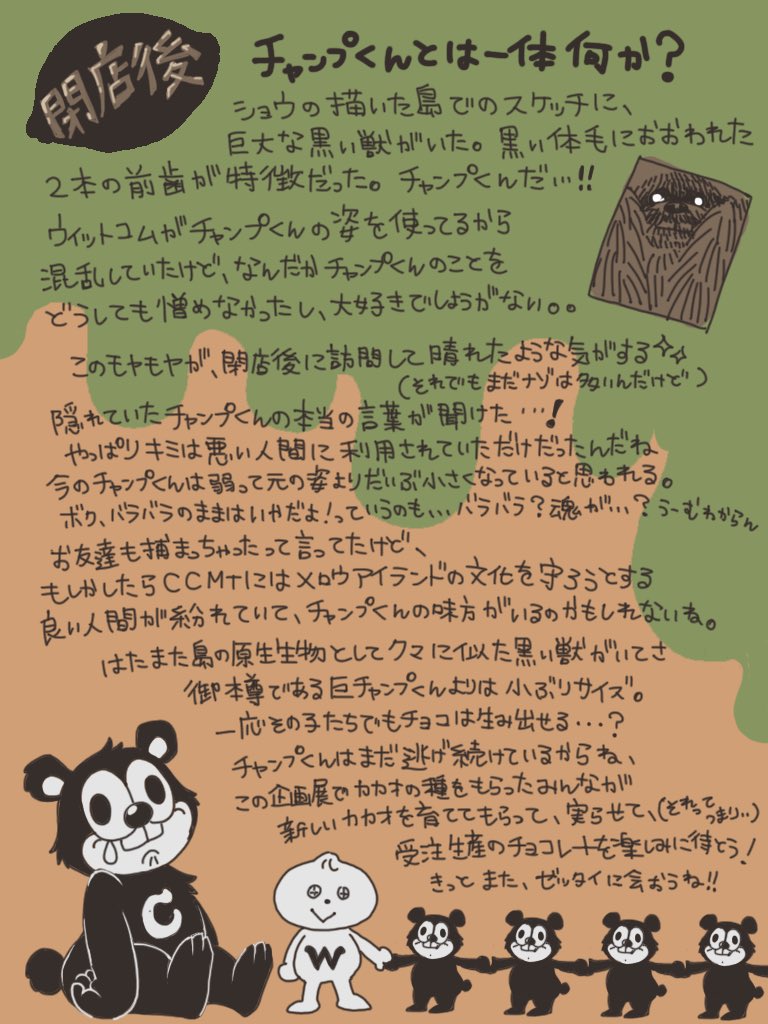 閉店後
チャンプくんとは一体何か?
ショウの描いた島でのスケッチに、
巨大な黒い獣がいた。黒い体毛におおわれた
2本の前歯が特徴だった。チャンプくんだ…!!
ウィットコムがチャンプくんの姿を使ってるから
混乱していたけど、なんだかチャンプくんのことを
どうしても憎めなかったし、大好きでしょうがない。。
このモヤモヤが、閉店後に訪問して晴れたような気がする✧✧
(それでもまだナゾは多いんだけど)
隠れていたチャンプくんの本当の言葉が聞けた…!
やっぱりキミは悪い人間に利用されていただけだったんだね
今のチャンプくんは弱って元の姿よりだいぶ小さくなっていると思われる。
ボク、バラバラのままはいやだよ!っていうのも…バラバラ?魂が…?うーむわからん
お友達も捕まっちゃったって言ってたけど、
もしかしたらCCMTにはメロウアイランドの文化を守ろうとする
良い人間が紛れていて、チャンプくんの味方がいるのかもしれないね。
はたまた島の原生生物としてクマに似た黒い獣がいてさ
御本尊である巨チャンプくんよりは小ぶりサイズ。
一応その子たちでもチョコは生み出せる…?
チャンプくんはまだ逃げ続けているからね、
この企画展でカカオの種をもらったみんなが
新しいカカオを育ててもらって、実らせて、(それってつまり…)
受注生産のチョコレートを楽しみに待とう!
きっとまた、ゼッタイに会おうね!!
C
W